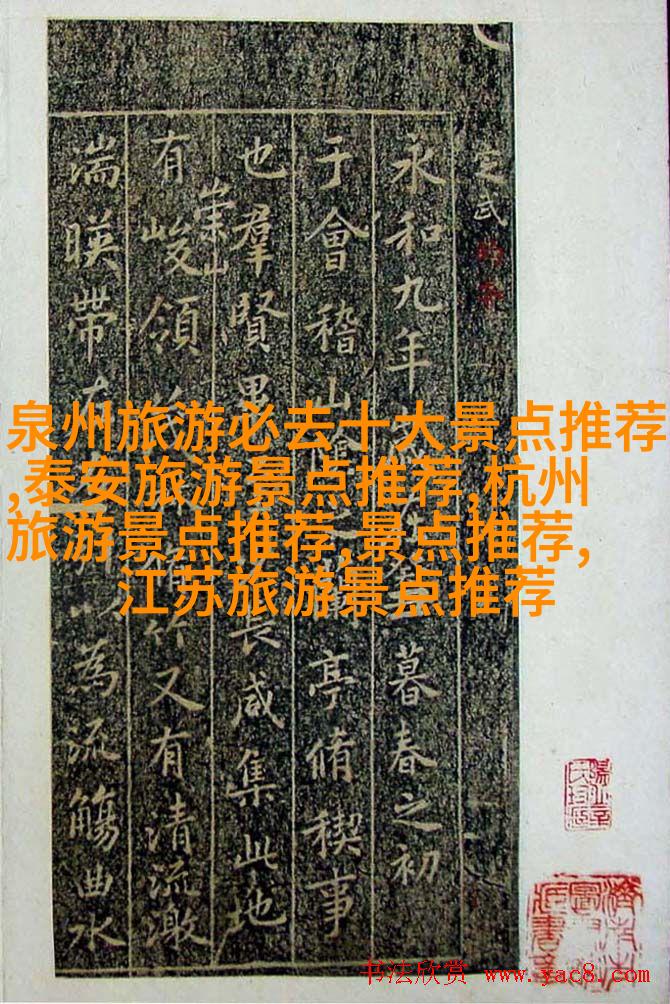 泉州旅游必去十大景点推荐
,泰安旅游景点推荐,杭州
旅游景点推荐,景点推荐,
江苏旅游景点推荐
定武
永和九年 暮春之初
于會稽山 亭脩稧事
也羣賢畢 長咸集此地
有崇山峻領 又有清流激
湍暎帶 以為流觴曲水
书法欣赏 www.yac8.com